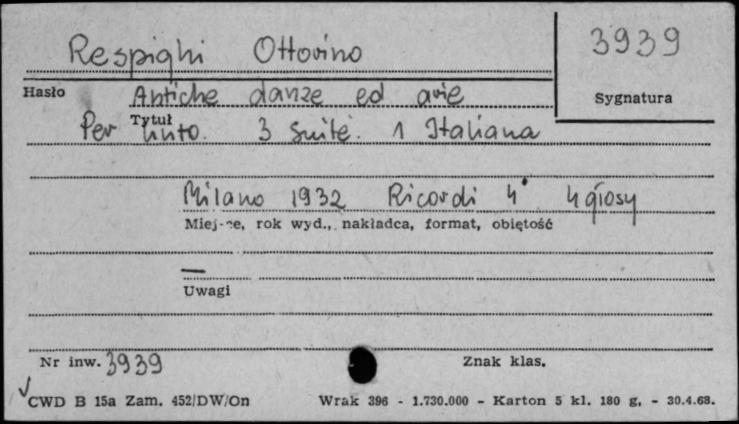 Respighi Ottorino
3939
Hasło
Antiche danze ed arie
Sygnatura
Tytuł
Per liuto. 3 Suite. 1 Italiana
Milano 1932 Ricordi 4° 4 głosy
Miejsce, rok wyd., nakładca, format, objętość
—
Uwagi
Nr inw. 3939
Znak klas.
CWD B 15a Zam. 452/DW/On
Wrak 396 - 1.730.000 - Karton 5 kl. 180 g. - 30.4.68.